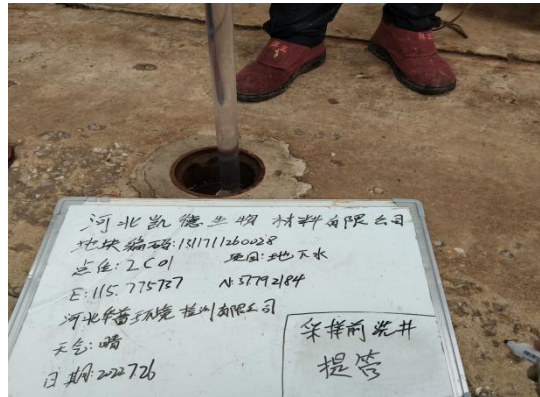 河北凯德生物材料有限公司
地块编码:1311711260028
点位:2C01 类园:地下水
E:115.775737 N:37.792184
河北华菁环境检测有限公司
天气:晴
日期:2022.7.26
采样前洗井
提管